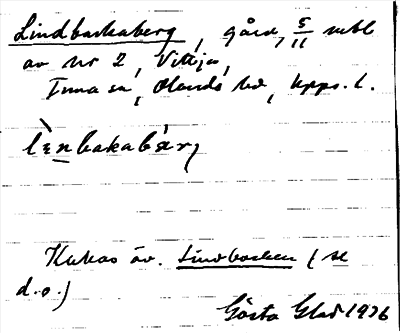 Lindbackaberg, gård, 5/11 mtl
av nr 2, Vittja,
Tuna sn, Olands hd, Upps. l.
lὲnbakabær,
Kallas äv. Lindbacken (se
d.o.)
Gösta Glad 1926